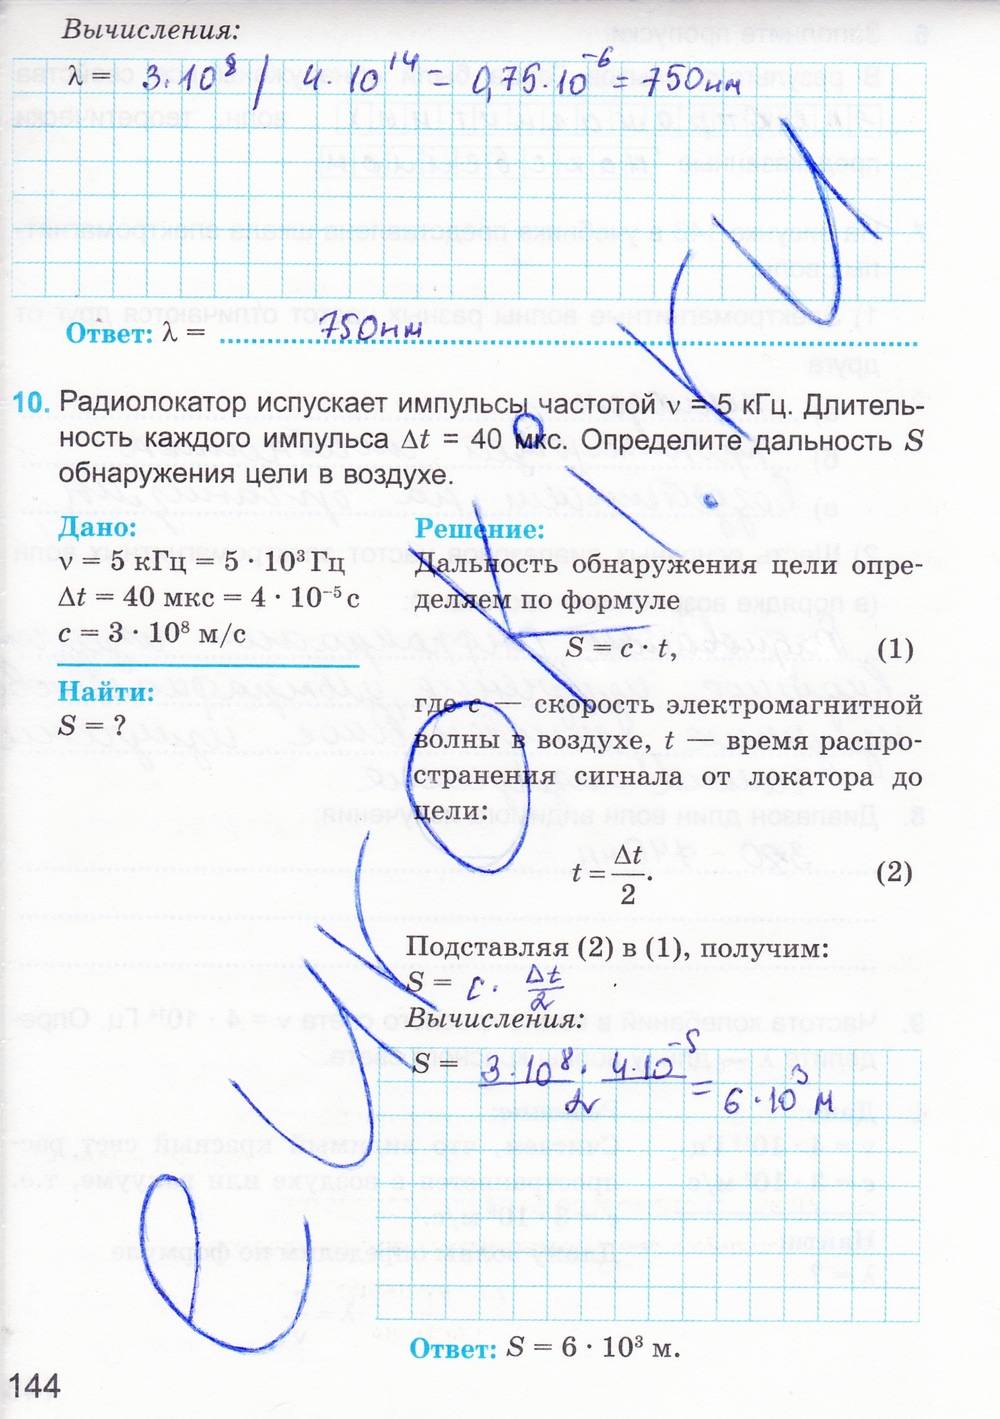 Вычисления:
λ = 3·10⁸ / 4·10¹⁴ = 0,75·10⁻⁶ = 750 нм
Ответ: λ = 750 нм
10. Радиолокатор испускает импульсы частотой ν = 5 кГц. Длитель-
ность каждого импульса Δt = 40 мкс. Определите дальность S
обнаружения цели в воздухе.
Дано:
ν = 5 кГц = 5 · 10³ Гц
Δt = 40 мкс = 4 · 10⁻⁵ с
c = 3 · 10⁸ м/с
Найти:
S = ?
Решение:
Дальность обнаружения цели опре-
деляем по формуле
S = c · t, (1)
где c — скорость электромагнитной
волны в воздухе, t — время распро-
странения сигнала от локатора до
цели:
t = Δt/2. (2)
Подставляя (2) в (1), получим:
S = c · Δt/2
Вычисления:
S = 3·10⁸ · 4·10⁻⁵ / 2 = 6·10³ м
Ответ: S = 6 · 10³ м.
144